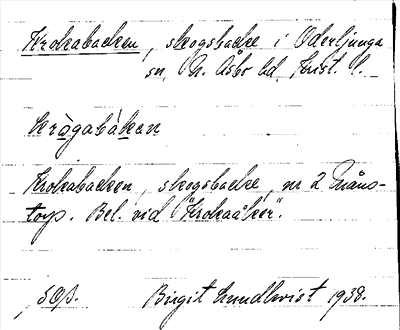 Krokabacken, skogsbacke i Oderljunga
sn, N. Åsbo hd, Krist. l.
krògabàkan
Krokabacken, skogsbacke, nr 2 Måns-
torp. Bel. vid "Krokaåker".
SOB. Birgit Lundkvist 1938.